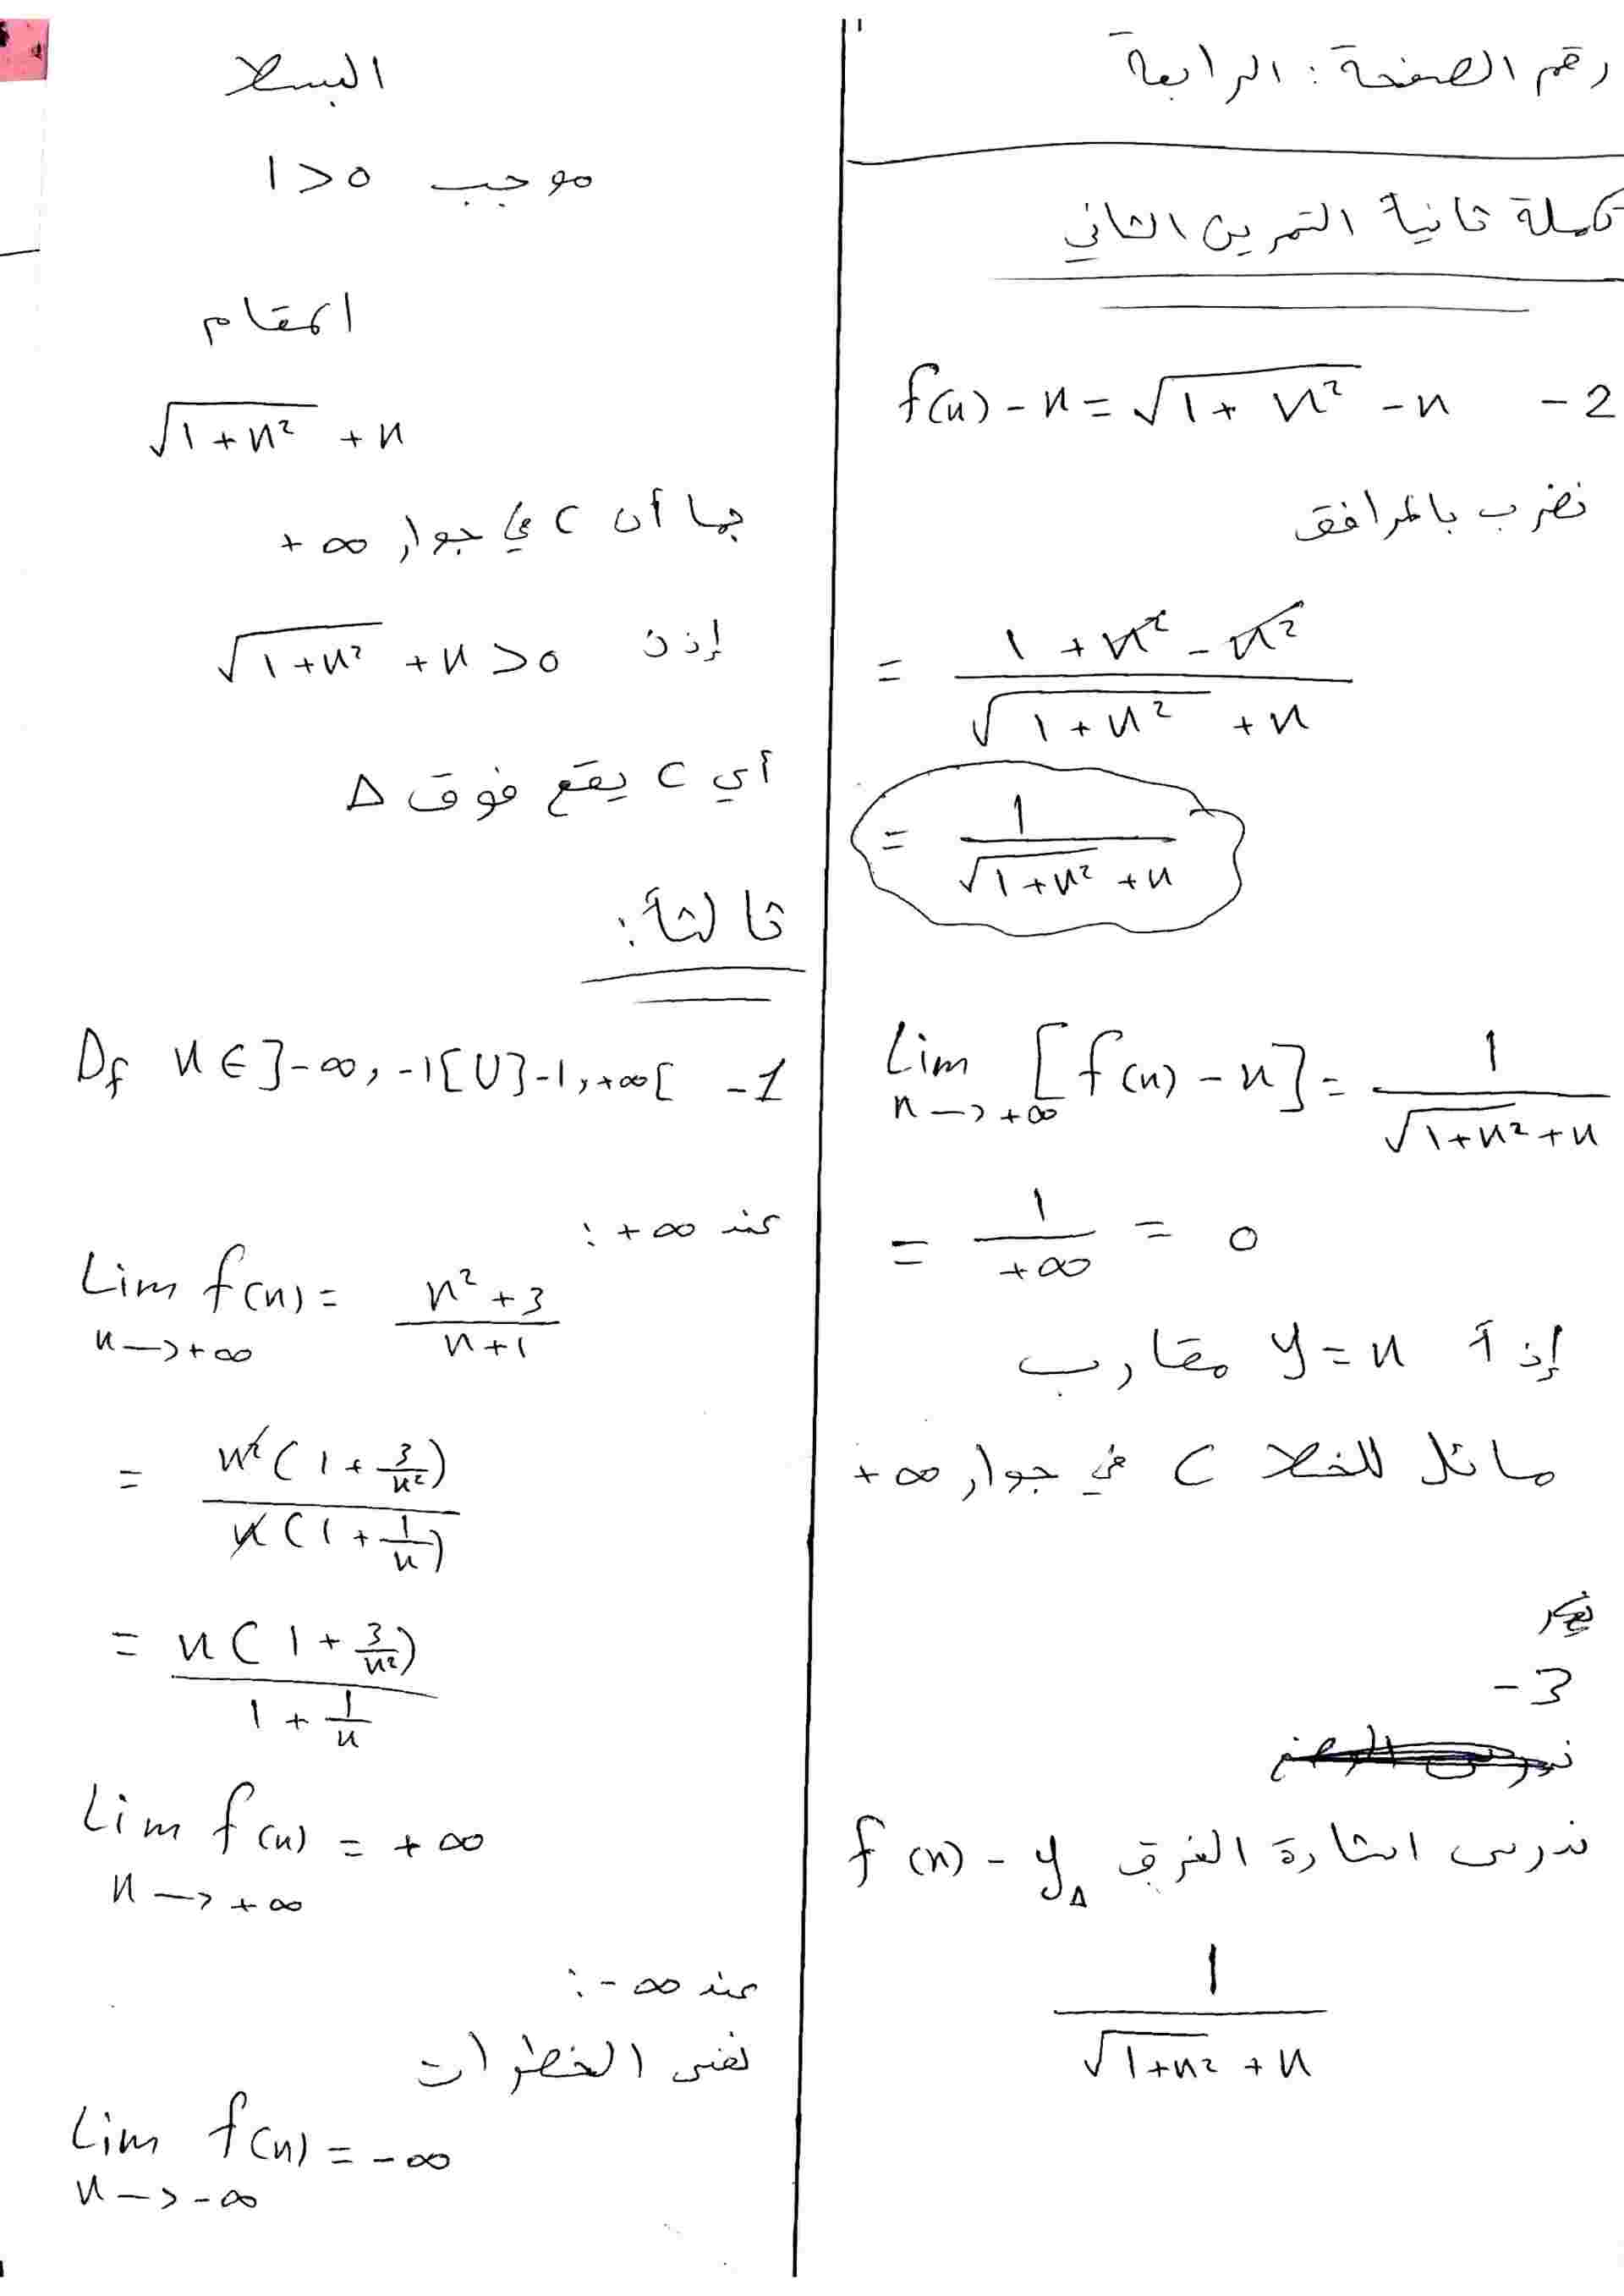 رقم الصفحة: الرابعة
تكملة ثانية التمرين الثاني
2- f(x) - x = √(1 + x²) - x
نضرب بالمرافق
= (1 + x² - x²) / (√(1 + x²) + x)
= 1 / (√(1+x²) + x)
Lim x→+∞ [f(x) - x] = 1 / (√(1+x²) + x)
= 1 / +∞ = 0
إذاً y = x مقارب
مائل للخط C في جوار +∞
3-
ندرس اشارة الفرق f(x) - y_Δ
1 / (√(1+x²) + x)
البسط
موجب 1 > 0
المقام
√(1+x²) + x
بما أن C في جوار +∞
إذن √(1+x²) + x > 0
أي C يقع فوق Δ
ثالثاً:
1- D_f x ∈ ]-∞, -1[ U ]-1, +∞[
عند +∞:
Lim x→+∞ f(x) = (x² + 3) / (x + 1)
= x²(1 + 3/x²) / x(1 + 1/x)
= x(1 + 3/x²) / (1 + 1/x)
Lim x→+∞ f(x) = +∞
عند -∞:
نفس الخطوات
Lim x→-∞ f(x) = -∞